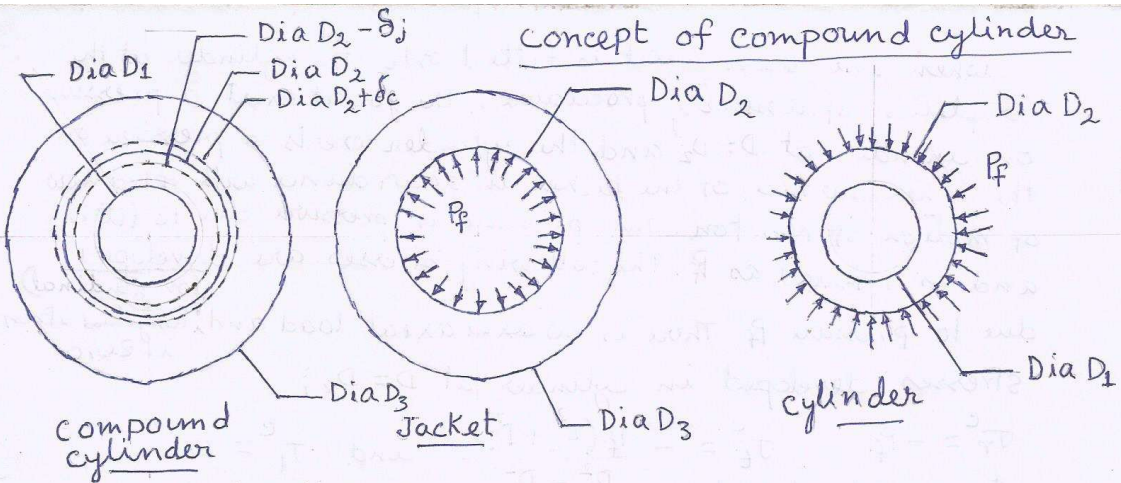 concept of compound cylinder
Dia D₂ - δj
Dia D₁
Dia D₂
Dia D₂+δc
Dia D₃
compound
cylinder
Dia D₂
Pf
Jacket
Dia D₃
Dia D₂
Pf
Dia D₁
cylinder